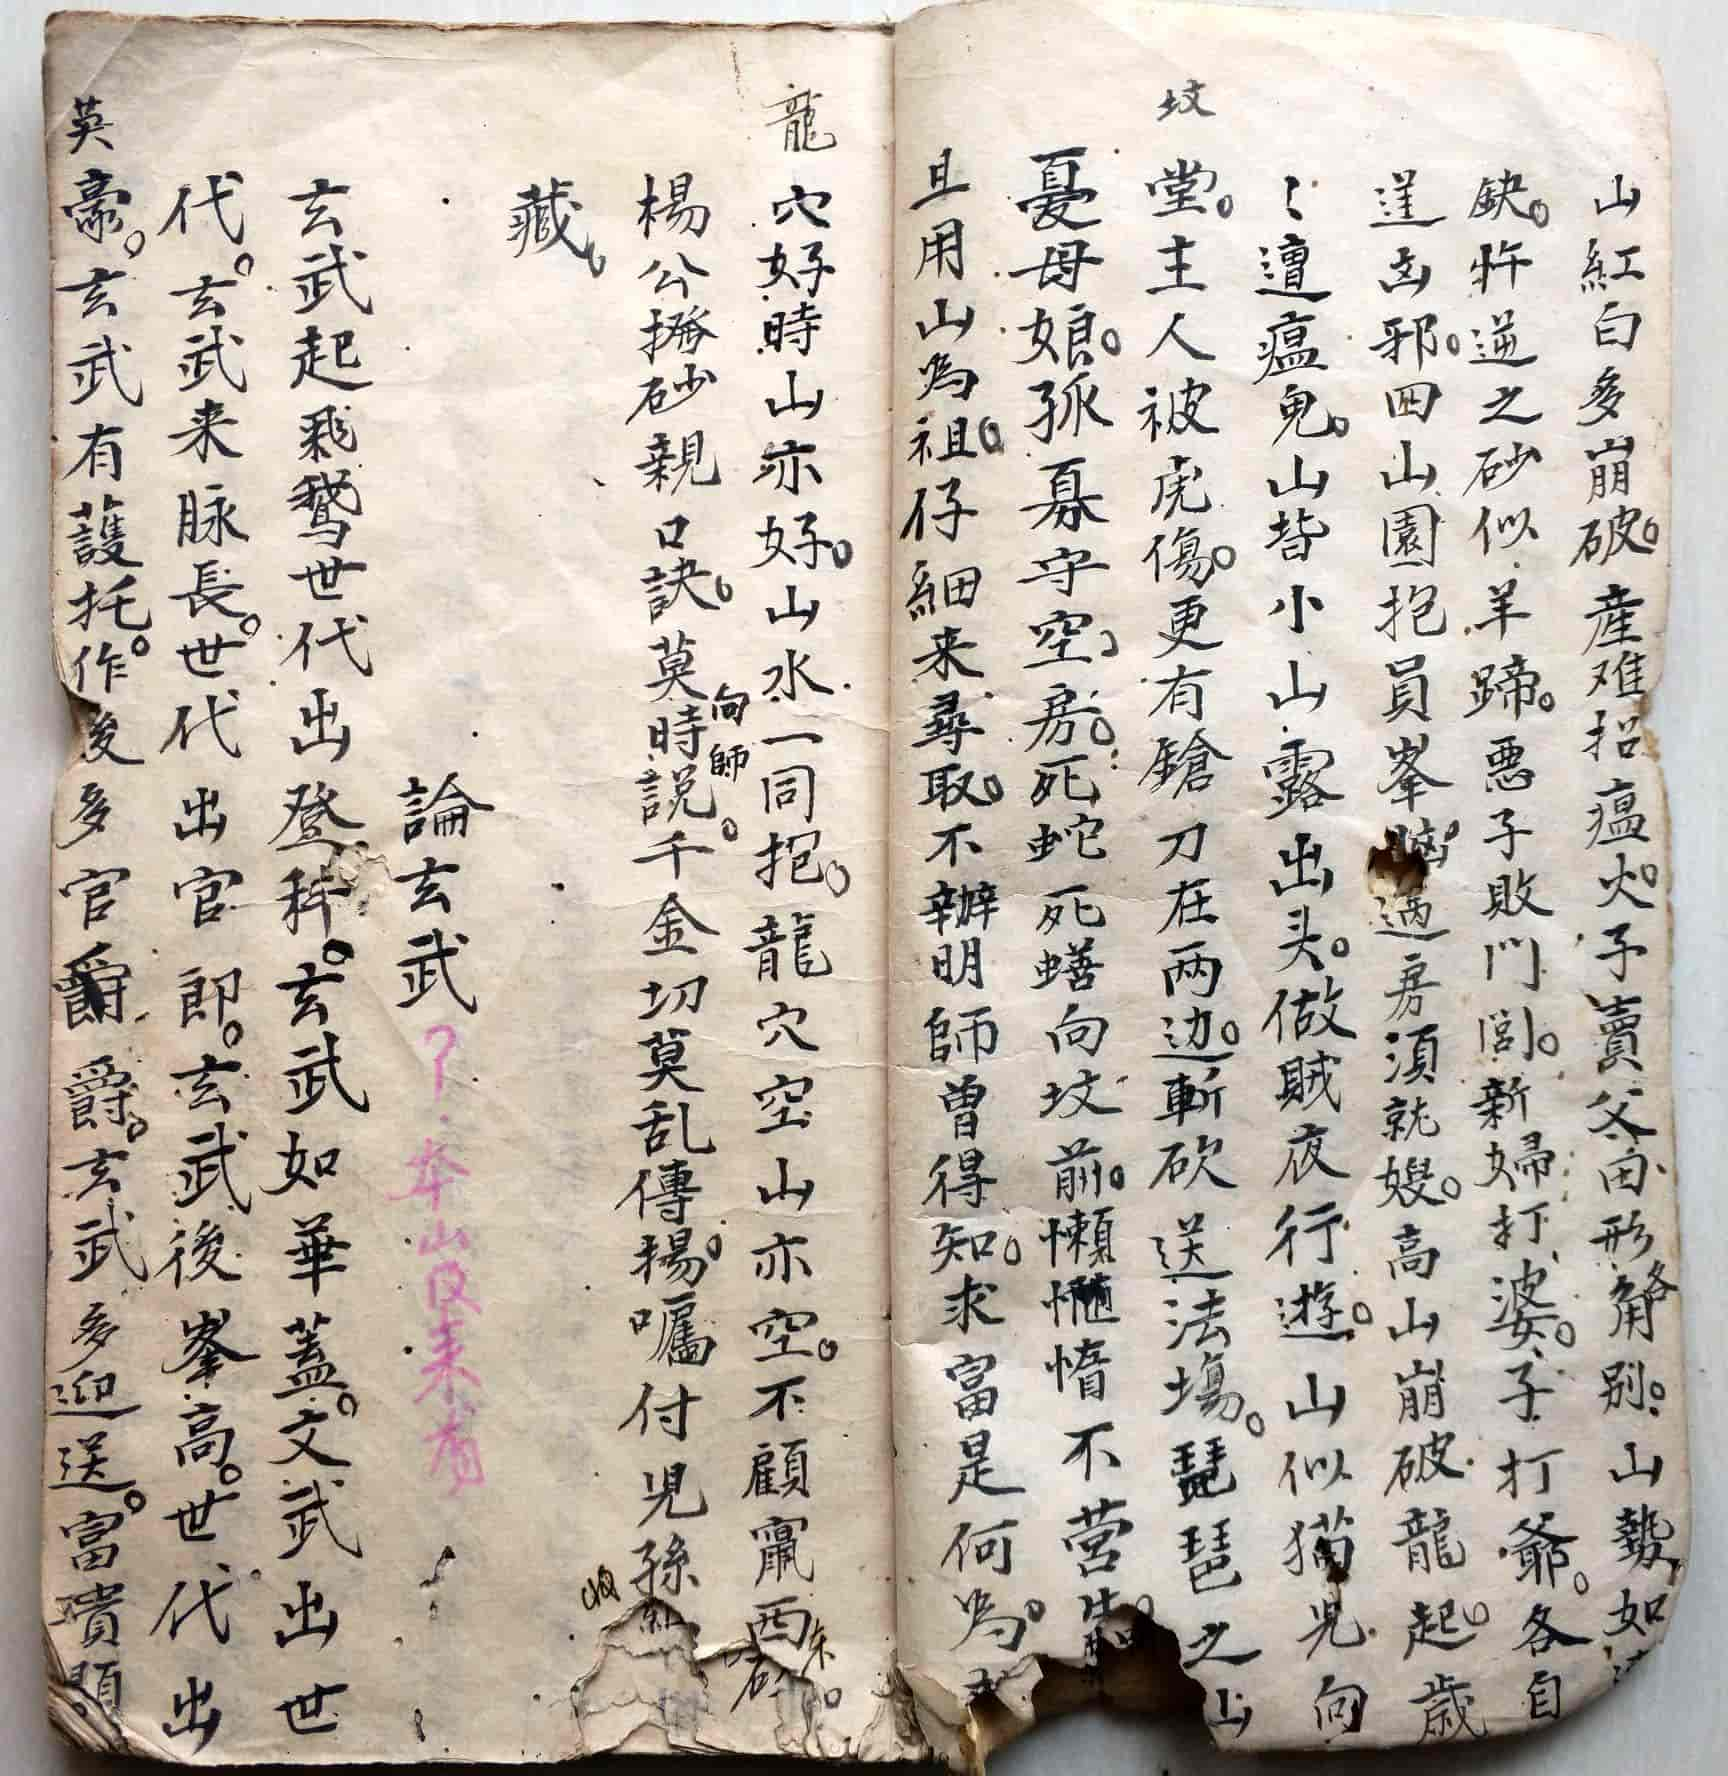 山紅白多崩破。産难招瘟火。子賣父田形角各别。山勢如
缺。忤逆之砂似羊蹄。悪子敗門閭。新婦打婆。子打爺。各自
逞凶邪。四山園抱員峯。過房須就嫂。高山崩破龍起。歳
〻遭瘟鬼。山皆小山露出头。做賊夜行遊。山似猫児向
坟
堂。主人被虎傷。更有鎗刀在両边。斬砍送法塲。琵琶之山
憂母娘。孤寡守空房。死蛇死蟮向坟前。懶惰不营生。
且用山為祖。仔細来尋取。不辦明師曾得知。求富是何為。
龍穴好時山亦好。山水一同抱。龍穴空山亦空。不顧東西
楊公撥砂親口訣。莫時向師説。千金切莫乱傳揚。囑付児孫
藏。
論玄武
本山後来者
玄武起飛鵞世代出登科。玄武如華蓋。文武出世
代。玄武来脉長。世代出官郎。玄武後峯高。世代出
英豪。玄武有護托。作後多官爵。玄武多迎送。富貴顕